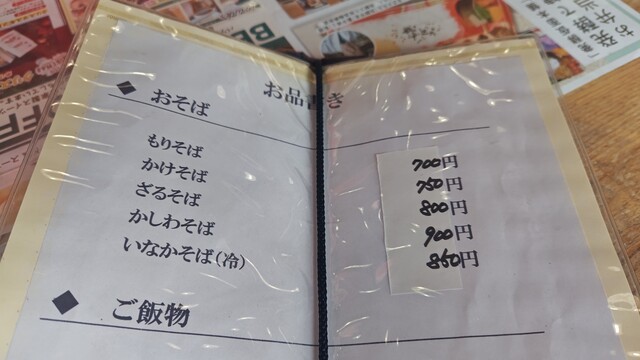 お品書き
◆ おそば
もりそば 700円
かけそば 750円
ざるそば 800円
かしわそば 900円
いなかそば(冷) 850円
◆ ご飯物